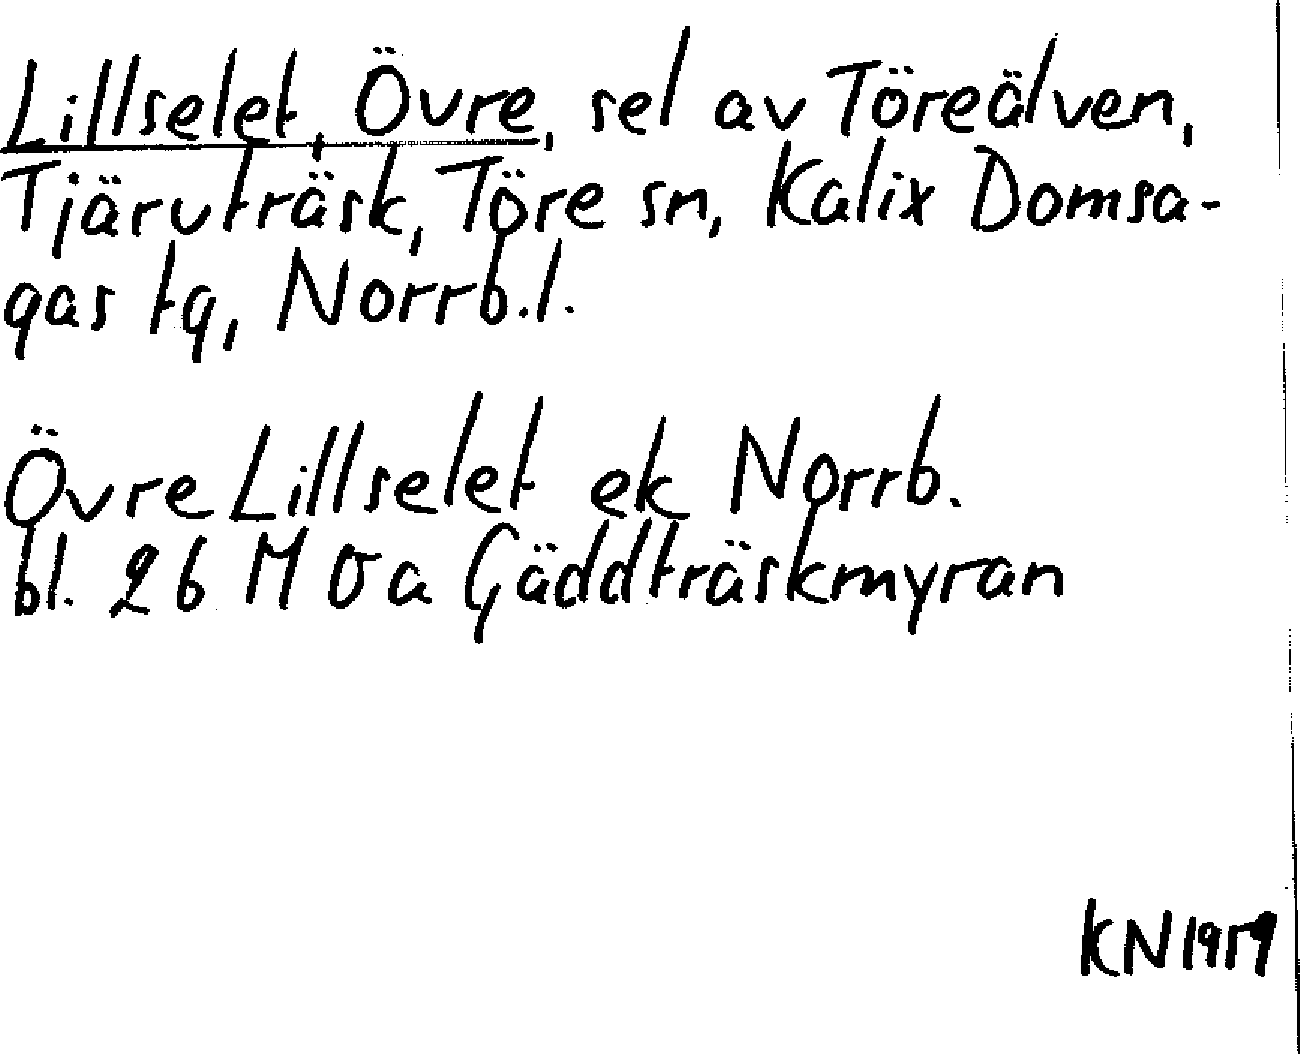 Lillselet, Övre, sel av Töreälven,
Tjäruträsk, Töre sn, Kalix Domsa-
gas tg, Norrb.l.
Övre Lillselet ek Norrb.
bl. 26 M Ö a Gäddträskmyran
KN 1959